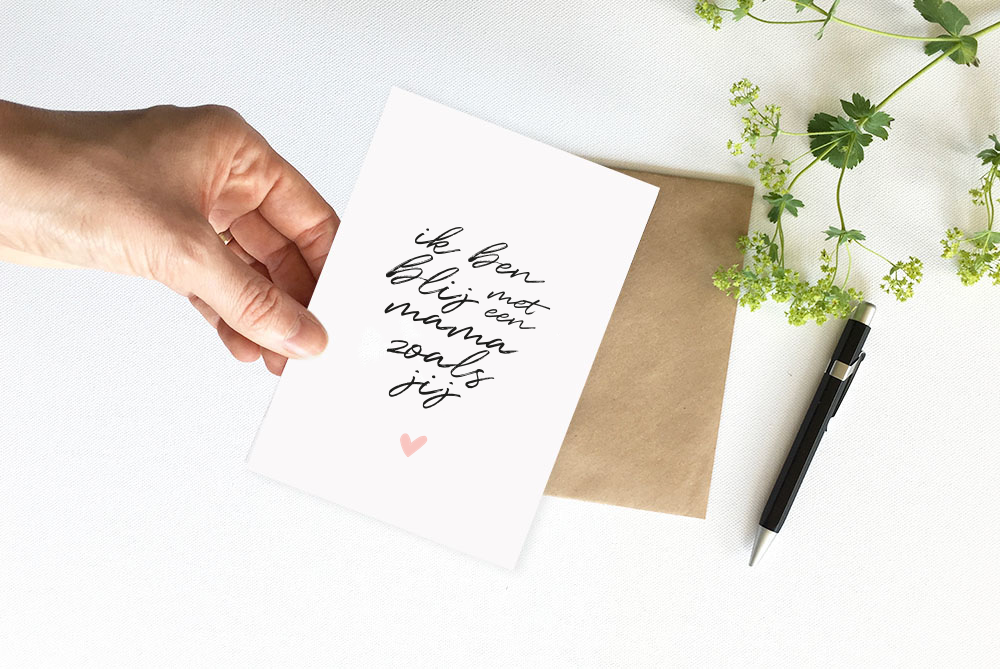 ik ben
blij met
een
mama
zoals
jij